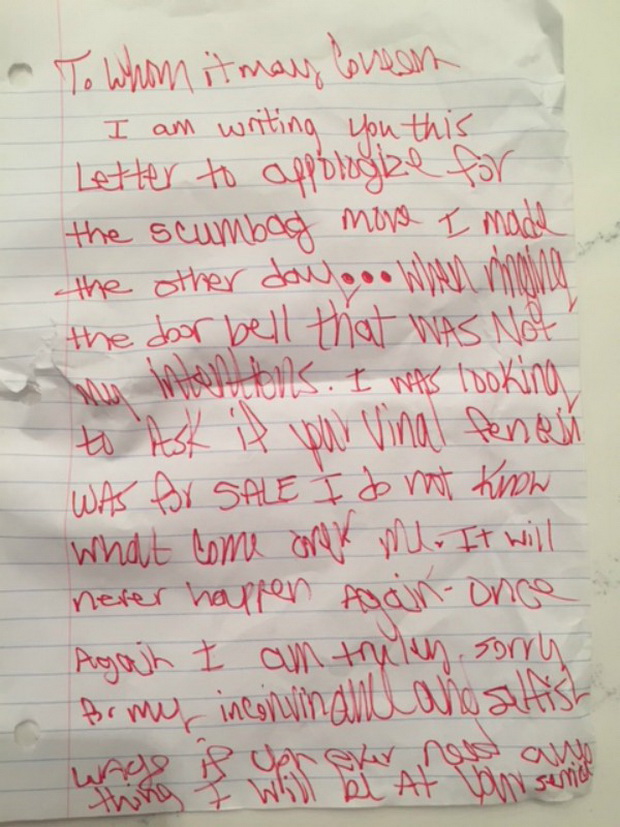 To Whom it may Concern
I am writing you this
Letter to appologize for
the scumbag move I made
the other day... When ringing
the door bell that WAS Not
my intentions. I was looking
to Ask if your Vinal fencein
WAS for SALE I do not Know
what come over me. It will
never happen Again - Once
Again I am truley sorry
for my and selfish
ways if you ever need any
thing I will be At your service